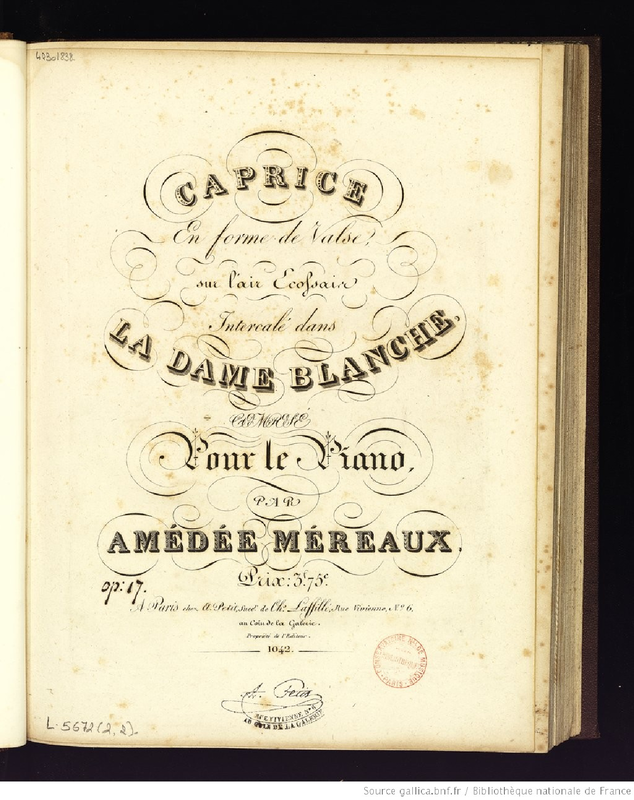 4030/838
CAPRICE
En forme de Valse,
sur l'air Ecossais
Intercalé dans
LA DAME BLANCHE,
COMPOSÉ
Pour le Piano,
PAR
AMÉDÉE MÉREAUX.
Prix: 3f. 75c.
op: 17.
A Paris chez A. Petit, Succr. de Ch. Laffillé, Rue Vivienne, No. 6,
au Coin de la Galerie.
Propriété de l'Editeur.
1042.
A. Petit
RUE VIVIENNE No. 6
AU COIN DE LA GALERIE
L-5672 (2,2).
Source gallica.bnf.fr / Bibliothèque nationale de France